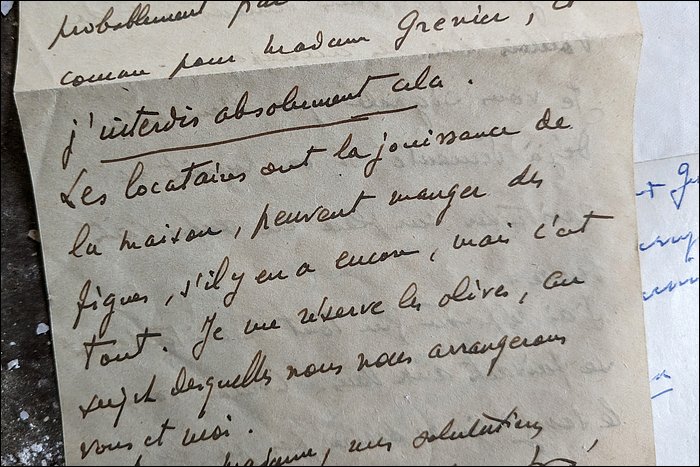 probablement par
comme pour madame Grenier, et
j'interdis absolument cela.
Les locataires ont la jouissance de
la maison, peuvent manger des
figues, s'il y en a encore, mais c'est
tout. Je me réserve les olives, au
sujet desquelles nous nous arrangerons
vous et moi.
madame, mes salutations